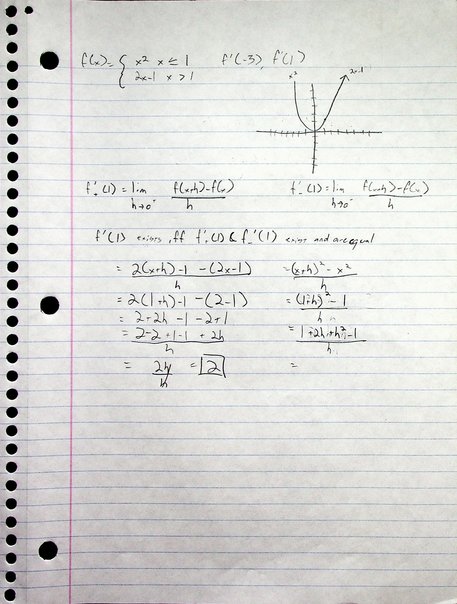 f(x) = { x² x ≤ 1 f'(-3), f'(1)
2x-1 x > 1
x² 2x-1
f'₊(1) = lim h→0⁻ f(x+h)-f(x) / h f'₋(1) = lim h→0⁻ f(x+h)-f(x) / h
f'(1) exists iff f'₊(1) & f₋'(1) exist and are equal
= 2(x+h)-1 -(2x-1) / h = (x+h)² - x² / h
= 2(1+h)-1 -(2-1) = (1+h)² - 1 / h
= 2+2h -1 -2+1
= 2-2+1-1 + 2h / h = 1+2h+h²-1 / h
= 2h / h = 2 =